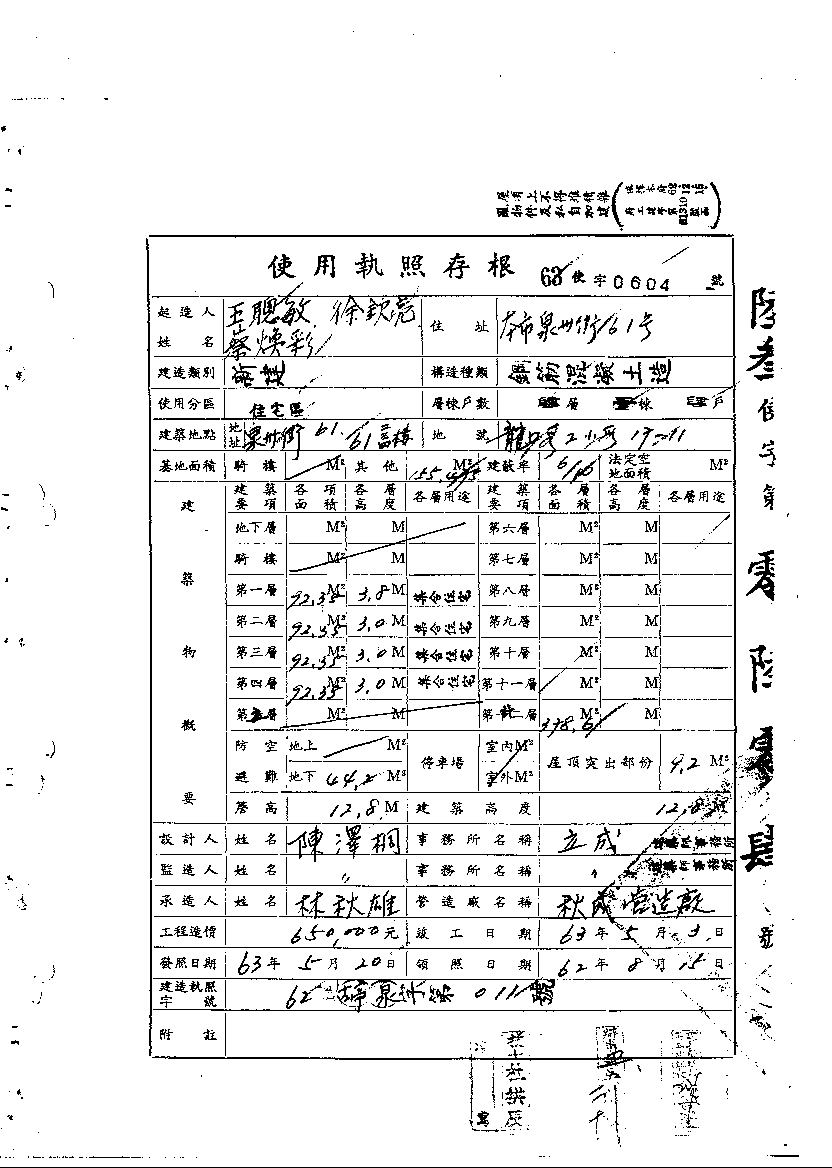 屋頂上不得堆積雜
物件及私自加建
使用執照存根 63 使字0604 號
起造人姓名 王聰敏 徐欽亮 蔡煥彩 住址 本市泉州街61号
建造類別 新建 構造種類 鋼筋混凝土造
使用分區 住宅區 層棟戶數 層 棟 戶
建築地點 地址 泉州街 61 地號 龍口段2小段
基地面積 騎樓 M² 其他 M² 建蔽率 法定空地面積 M²
建築物概要
建築要項 各項面積 各層高度 各層用途 建築要項 各層面積 各層高度 各層用途
地下層 M² M 第六層 M² M
騎樓 M² M 第七層 M² M
第一層 92.35 M² 3.8 M 集合住宅 第八層 M² M
第二層 92.35 M² 3.0 M 集合住宅 第九層 M² M
第三層 92.35 M² 3.0 M 集合住宅 第十層 M² M
第四層 92.35 M² 3.0 M 集合住宅 第十一層 M² M
第五層 M² M 378.6
防空避難 地上 M² 停車場 室內M² 屋頂突出部份 9.2 M²
地下 44.2 M² 室外M²
簷高 12.8 M 建築高度 12.8 M
設計人 姓名 陳澤桐 事務所名稱 立成 建築師事務所
監造人 姓名 〃 事務所名稱 〃 建築師事務所
承造人 姓名 林秋雄 營造廠名稱 秋成营造廠
工程造價 650,000元 竣工日期 63年5月3日
發照日期 63年5月20日 領照日期 62年8月15日
建造執照字號 62 011 號
附註
陸叁使字第零陸零肆號